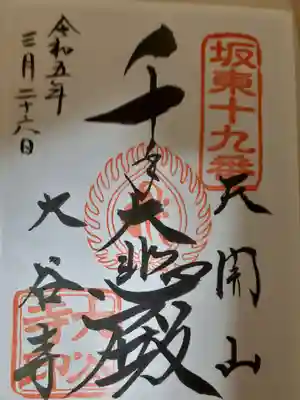 坂東十九番
天開山
千手大悲殿
令和五年
三月二十六日
大谷寺